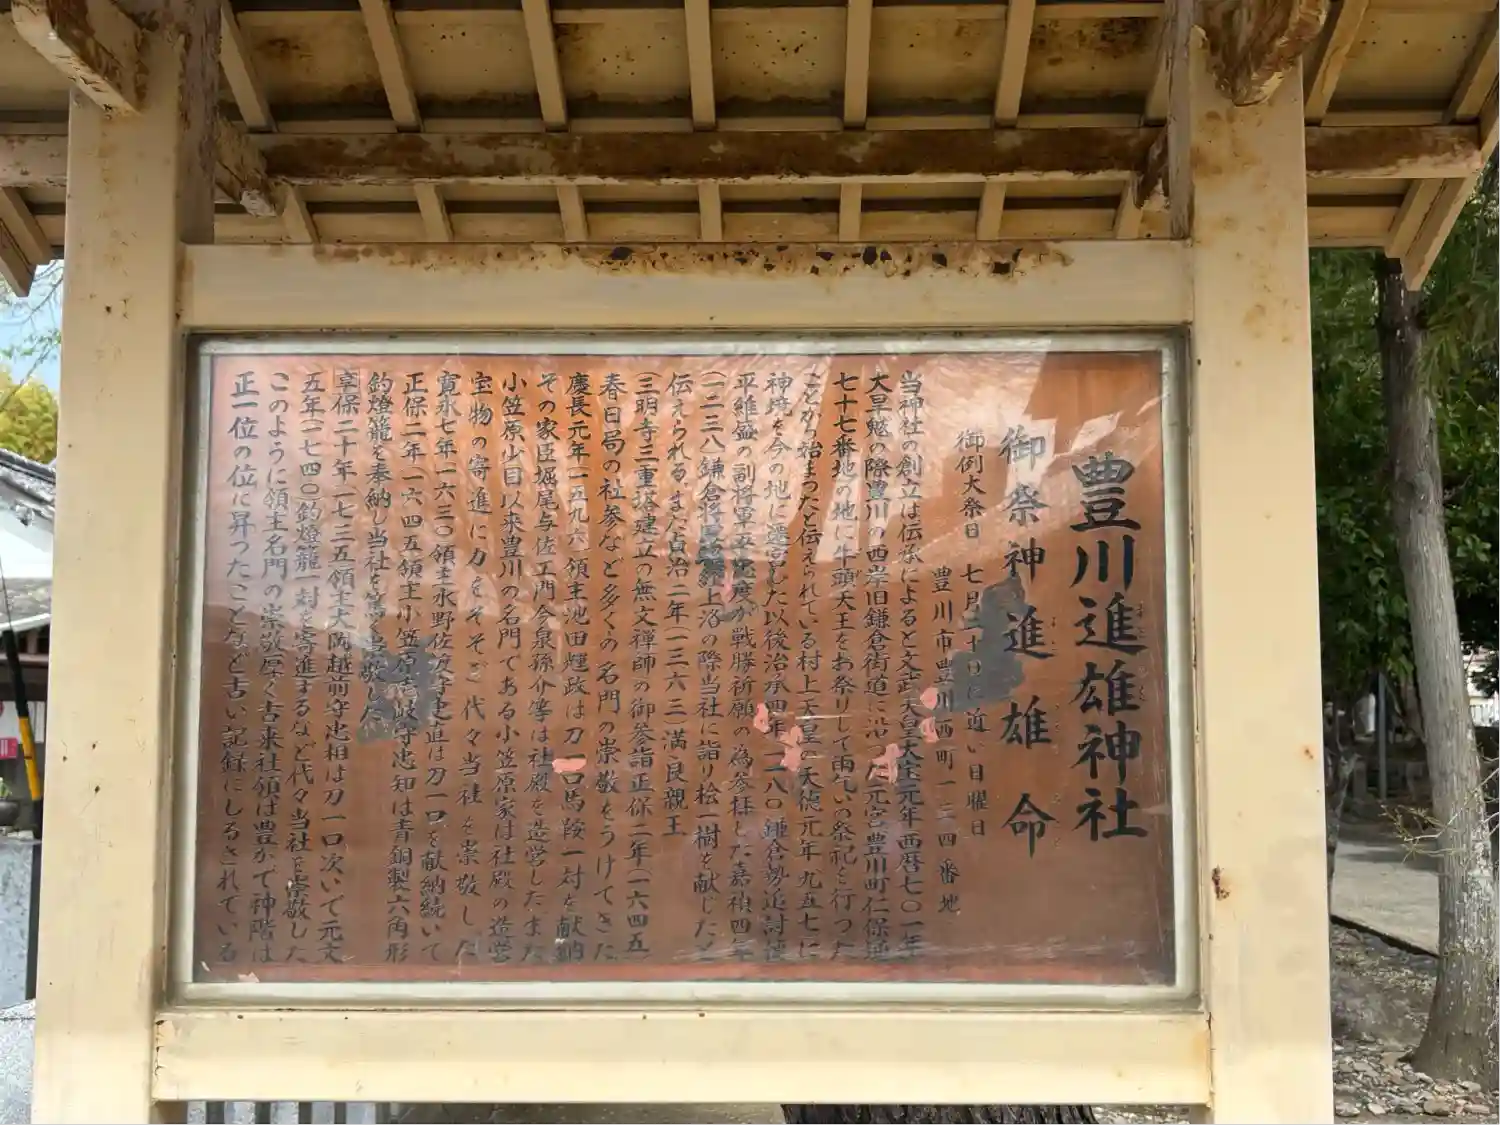 豊川進雄神社
御祭神 進雄命
御例大祭日 七月二十日に近い日曜日
豊川市豊川西町一三四番地
当神社の創立は伝承によると文武天皇大宝元年西暦七〇一年
大旱魃の際豊川の西岸旧鎌倉街道に沿った元宮豊川町仁保通
七十七番地の地に牛頭天王をお祭りして雨乞いの祭祀を行つた
ことから始まつたと伝えられている村上天皇の天徳元年九五七に
神境を今の地に遷宮した以後治承四年一一八〇鎌倉勢追討使
平維盛の副将軍平忠度が戦勝祈願の為参拝した嘉禎四年
(一二三八)鎌倉将軍 上洛の際当社に詣り桧一樹を献じたと
伝えられるまた貞治二年(一三六三)満良親王
(三明寺三重塔建立の無文禅師の御参詣正保二年(一六四五)
春日局の社参など多くの名門の崇敬をうけてきた
慶長元年一五九六領主池田輝政は刀一口馬鞍一対を献納
その家臣堀尾与佐エ門今泉孫介等は社殿を造営したまた
小笠原山目以来豊川の名門である小笠原家は社殿の造営
宝物の寄進に力をそそぎ代々当社を崇敬した
寛永七年一六三〇領主水野佐 守忠直は刀一口を献納続いて
正保二年一六四五領主小笠原壱岐守忠知は青銅製六角形
釣燈籠を奉納し当社を 崇敬した
享保二十年一七三五領主大岡越前守忠相は刀一口次いで元文
五年(一七四〇釣燈籠一対を寄進するなど代々当社を崇敬した
このように領主名門の崇敬厚く古来社領は豊かで神階は
正一位の位に昇つたことなど古い記録にしるされている